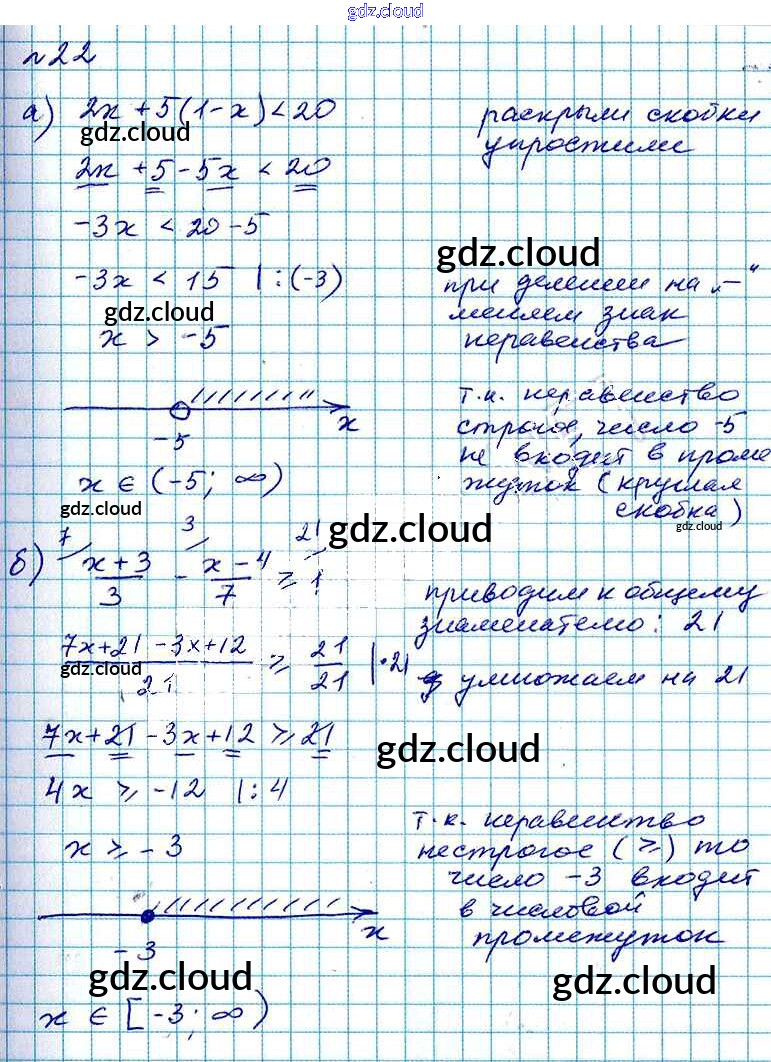 gdz.cloud
№22
а) 2x + 5(1-x) < 20 раскрыли скобки
gdz.cloud упростили
2x + 5 - 5x < 20
-3x < 20 - 5
gdz.cloud
-3x < 15 | : (-3) при делении на „-“
gdz.cloud меняем знак
x > -5 неравенства
-5 x
т.к. неравенство
строгое, число -5
не входит в проме
x ∈ (-5; ∞) жуток (круглая
gdz.cloud скобка)
gdz.cloud
gdz.cloud
7 3 21
б) (x+3)/3 - (x-4)/7 ≥ 1 приводим к общему
знаменателю: 21
(7x+21-3x+12)/21 ≥ 21/21 | · 21 умножаем на 21
gdz.cloud
7x + 21 - 3x + 12 ≥ 21
gdz.cloud
4x ≥ -12 | : 4
x ≥ -3
т.к. неравенство
нестрогое (≥) то
число -3 входит
в числовой
промежуток
-3 x
gdz.cloud
gdz.cloud
x ∈ [-3; ∞)